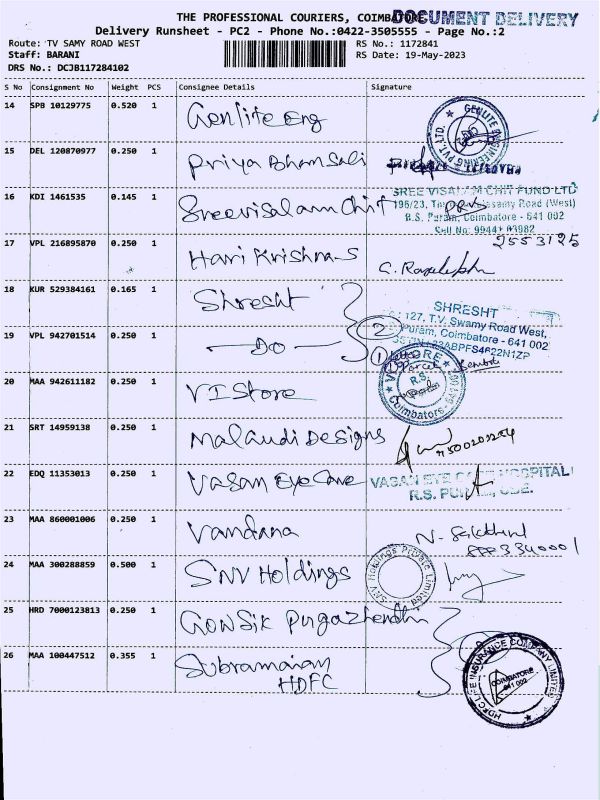 THE PROFESSIONAL COURIERS, COIMBATORE
DOCUMENT DELIVERY
Delivery Runsheet - PC2 - Phone No.:0422-3505555 - Page No.:2
Route: TV SAMY ROAD WEST
RS No.: 1172841
Staff: BARANI
RS Date: 19-May-2023
DRS No.: DCJB117284102
S No Consignment No Weight PCS Consignee Details Signature
14 SPB 10129775 0.520 1 Genlite Eng
GENLITE ENGINEERING PVT. LTD.
15 DEL 120870977 0.250 1 Priya Bhamsali
16 KDI 1461535 0.145 1 Sreevisalam Chit
SREE VISALAM CHIT FUND LTD
196/23, Swamy Road (West)
R.S. Puram, Coimbatore - 641 002
Cell No: 99441 03982
2553125
17 VPL 216895870 0.250 1 Hari Krishna S
18 KUR 529384161 0.165 1 Shresht
SHRESHT
127, T.V. Swamy Road West,
Puram, Coimbatore - 641 002
19 VPL 942701514 0.250 1 — DO —
2
1
20 MAA 942611182 0.250 1 VI Store
R.S.
Coimbatore - 641 002
21 SRT 14959138 0.250 1 Malaudi Designs
22 EDQ 11353013 0.250 1 Vasan Eye Care
VASAN EYE CARE HOSPITAL
R.S. PURAM, CBE.
23 MAA 860001006 0.250 1 Vandana
24 MAA 300288859 0.500 1 SNV Holdings
SNV Holdings Private Limited
25 HRD 7000123813 0.250 1 Gowsik Pugazhendhi
26 MAA 100447512 0.355 1 Subramaniam
HDFC
HDFC LIFE INSURANCE COMPANY LIMITED
COIMBATORE
641 002